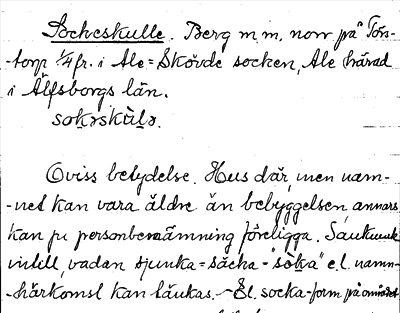 Sockeskulle. Berg m.m. norr på Tors-
-torp 1/4 fr. i Ale=Skövde socken, Ale härad
i Älfsborgs län.
sokəskùlə.
Oviss betydelse. Hus där, men nam-
-net kan vara äldre än bebyggelsen annars
kan ju personbenämning föreligga.
intill, vadan sjunka = säcka - "söka" e.l. namn-
-härkomst kan tänkas. - Ej. socka-form på området